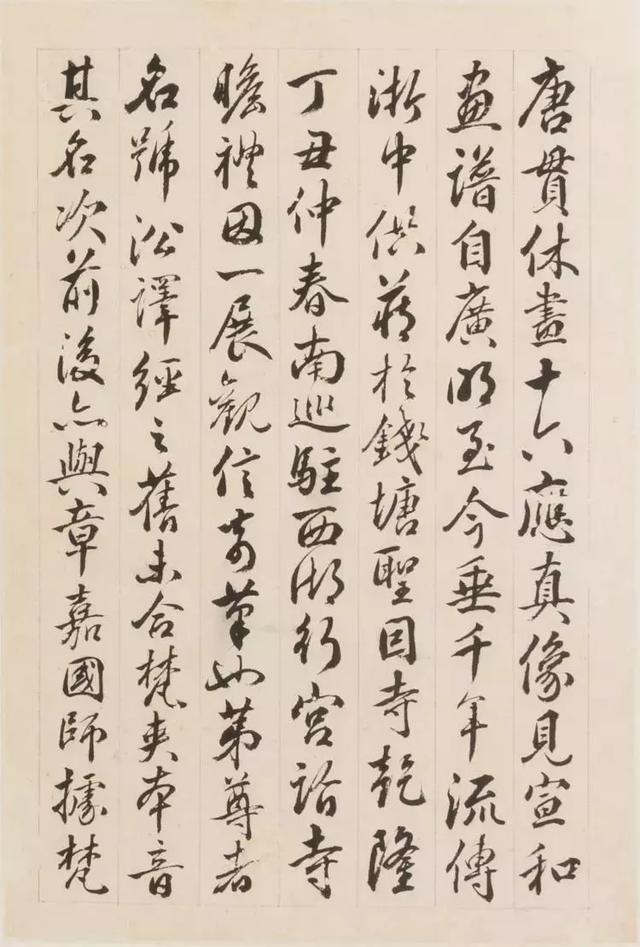 唐貫休畫十六應真像見宣和
畫譜自廣明至今垂千年流傳
浙中供藏於錢塘聖因寺乾隆
丁丑仲春南巡駐西湖行宮詣寺
瞻禮因一展觀信奇筆也第尊者
名號沿譯經之舊未合梵夾本音
其名次前後亦與章嘉國師據梵